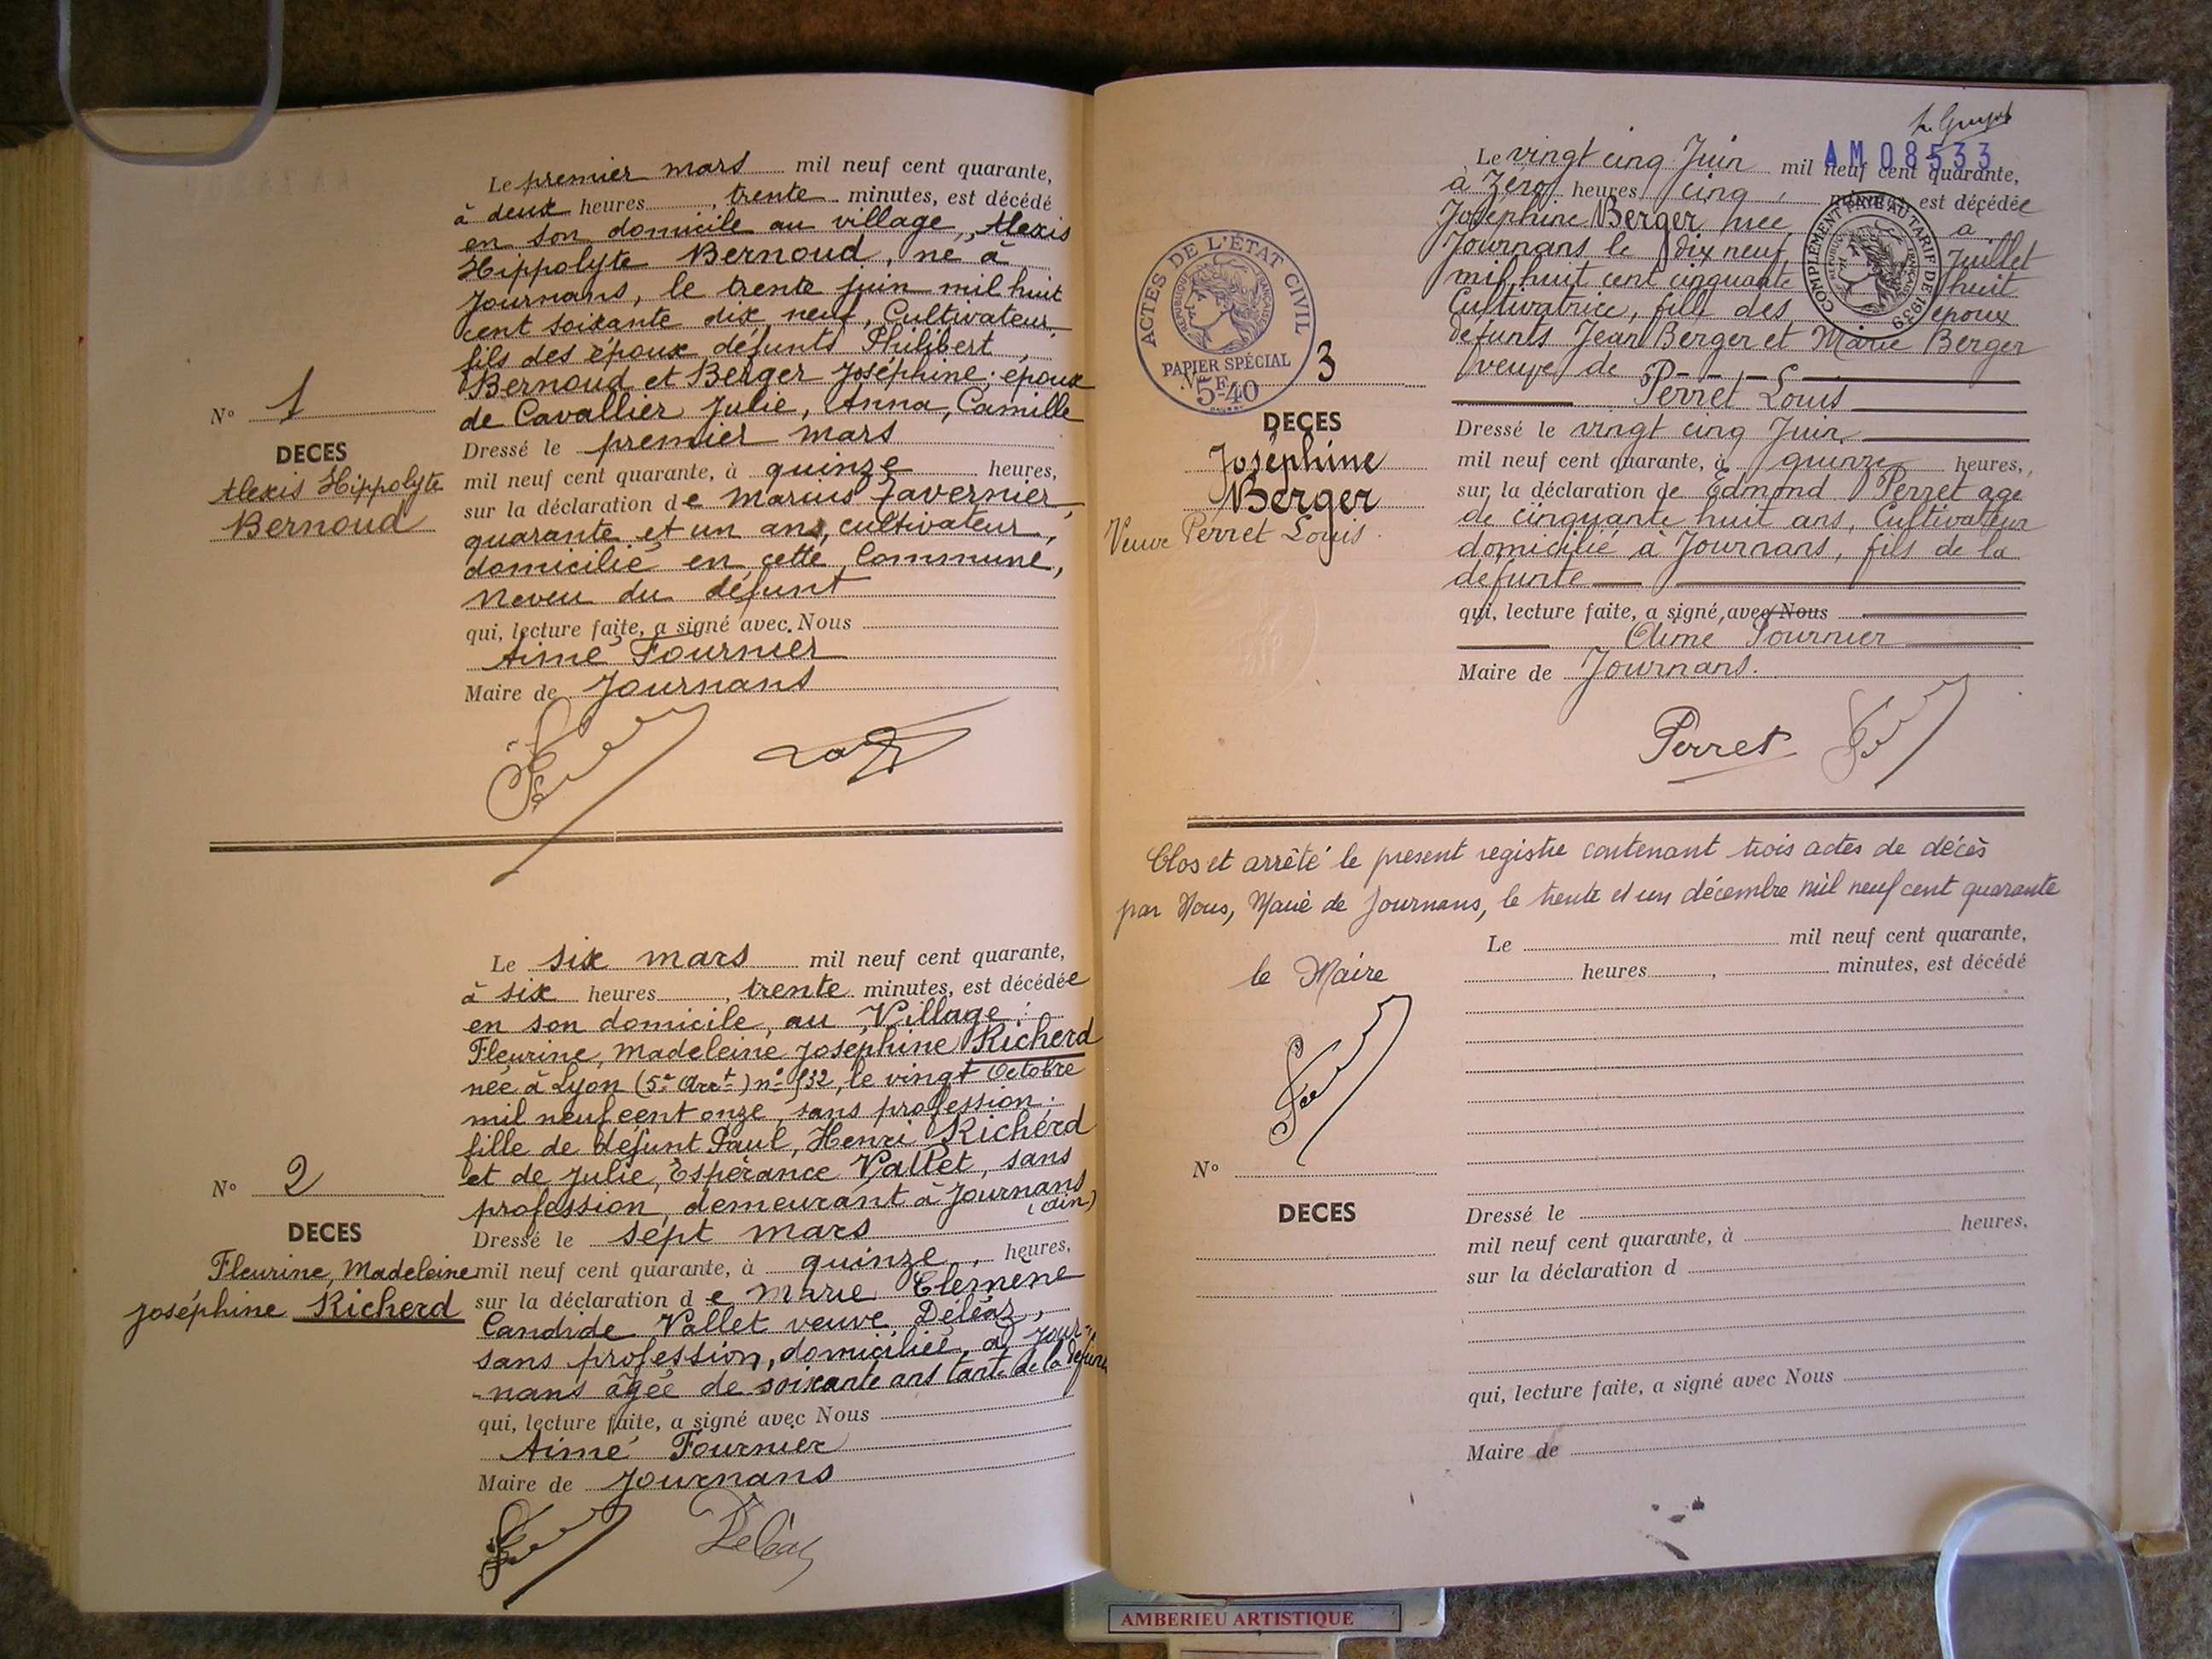 Le premier mars mil neuf cent quarante,
à deux heures, trente minutes, est décédé
en son domicile au village, Alexis
Hippolyte Bernoud, né à
Journans, le trente juin mil huit
cent soixante dix neuf, Cultivateur,
fils des époux défunts Philibert
Bernoud et Berger Joséphine, époux
de Cavallier Julie, Anna, Camille
Dressé le premier mars
mil neuf cent quarante, à quinze heures,
sur la déclaration de Marius Tavernier,
quarante et un ans, cultivateur,
domicilié en cette Commune,
Neveu du défunt
qui, lecture faite, a signé avec Nous
Aimé Fournier
Maire de Journans
N° 1
DECES
Alexis Hippolyte
Bernoud
Le six mars mil neuf cent quarante,
à six heures, trente minutes, est décédée
en son domicile, au Village :
Fleurine, Madeleine Joséphine Richerd
née à Lyon (5e Arrt) n° 932, le vingt Octobre
mil neuf cent onze, sans profession.
fille de défunt Paul, Henri Richerd
et de Julie, Espérance Vallet, sans
profession, demeurant à Journans
(Ain)
Dressé le sept mars
mil neuf cent quarante, à quinze heures,
sur la déclaration de Marie Clémène
Candide Vallet veuve Déléaz,
sans profession, domiciliée à Jour-
-nans âgée de soixante ans tante de la
qui, lecture faite, a signé avec Nous
Aimé Fournier
Maire de Journans
Déléaz
N° 2
DECES
Fleurine, Madeleine
Joséphine Richerd
AM 08533
Le vingt cinq Juin mil neuf cent quarante,
à Zéro heures, cinq, est décédée
Joséphine Berger née à
Journans le dix neuf Juillet
mil huit cent cinquante huit
Cultivatrice, fille des époux
défunts Jean Berger et Marie Berger
veuve de
Perret Louis
Dressé le vingt cinq Juin
mil neuf cent quarante, à quinze heures,
sur la déclaration de Edmond Perret age
de cinquante huit ans, Cultivateur
domicilié à Journans, fils de la
défunte
qui, lecture faite, a signé, avec Nous
Aimé Fournier
Maire de Journans.
Perret
COMPLÉMENT PRIS AU TARIF DE 1939
ACTES DE L'ÉTAT CIVIL
RÉPUBLIQUE FRANÇAISE
PAPIER SPÉCIAL
5F.40
N° 3
DECES
Joséphine
Berger
Veuve Perret Louis.
Clos et arrêté le présent registre contenant trois actes de décès
par Nous, Maire de Journans, le trente et un décembre mil neuf cent quarante
le Maire
Le mil neuf cent quarante,
heures, minutes, est décédé
N°
DECES
Dressé le
mil neuf cent quarante, à heures,
sur la déclaration d
qui, lecture faite, a signé avec Nous
Maire de
AMBERIEU ARTISTIQUE